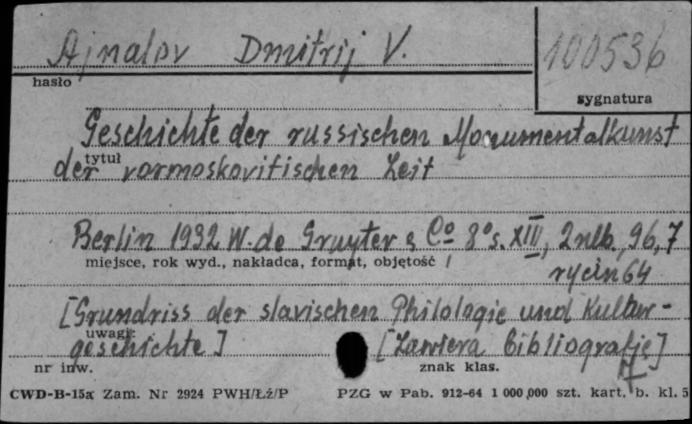 Ajnalov Dmitrij V.
100536
hasło
sygnatura
Geschichte der russischen Monumentalkunst
tytuł
der vormoskovitischen Zeit
Berlin 1932 W. de Gruyter & Co 8° s. XIII, 2 nlb., 96, 7
miejsce, rok wyd., nakładca, format, objętość
rycin 64
[Grundriss der slavischen Philologie und Kultur-
uwagi:
geschichte] [Zawiera bibliografię]
nr inw. znak klas.
CWD-B-15a Zam. Nr 2924 PWH/Łź/P PZG w Pab. 912-64 1 000 000 szt. kart. b. kl. 5